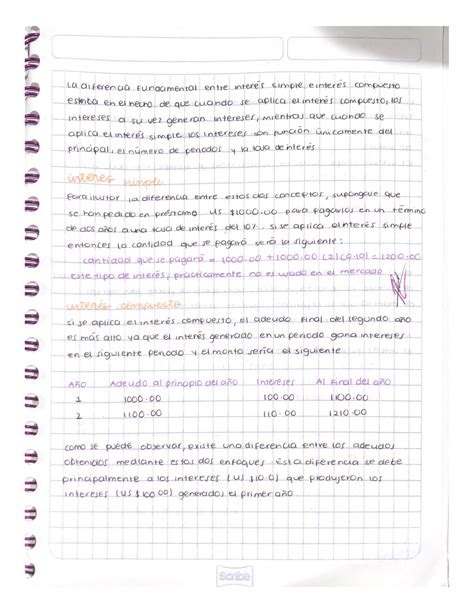 La diferencia fundamental entre interés simple, e interés compuesto
estriba en el hecho de que cuando se aplica el interés compuesto, los
intereses a su vez generan intereses, mientras que cuando se
aplica el interés simple los intereses son función únicamente del
principal, el número de periodos y la tasa de interés
interés simple
Para ilustar la diferencia entre estos dos conceptos, supongase que
se han pedido en préstamo US $1000.00 para pagarlos en un término
de dos años a una tasa de interés del 10%. si se aplica el interés simple
entonces la cantidad que se pagará será la siguiente:
cantidad que se pagará = 1000.00 + 1000.00 (2)(0.10) = 1200.00
Este tipo de interés, prácticamente no es usado en el mercado
interés compuesto
si se aplica el interés compuesto, el adeudo final del segundo año
es más alto ya que el interés generado en un periodo gana intereses
en el siguiente periodo y el monto sería el siguiente
Año Adeudo al principio del año Intereses Al final del año
1 1000.00 100.00 1100.00
2 1100.00 110.00 1210.00
como se puede observar, existe una diferencia entre los adeudos
obtenidos mediante estos dos enfoques Esta diferencia se debe
principalmente a los intereses (US $10.0) que produjeron los
intereses (US $100.00) generados el primer año.
Scribe